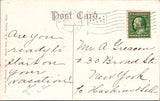 Post Card
Are you
ready to
start on
your
vacation
Mr A Greacen
30 Broad St
New York